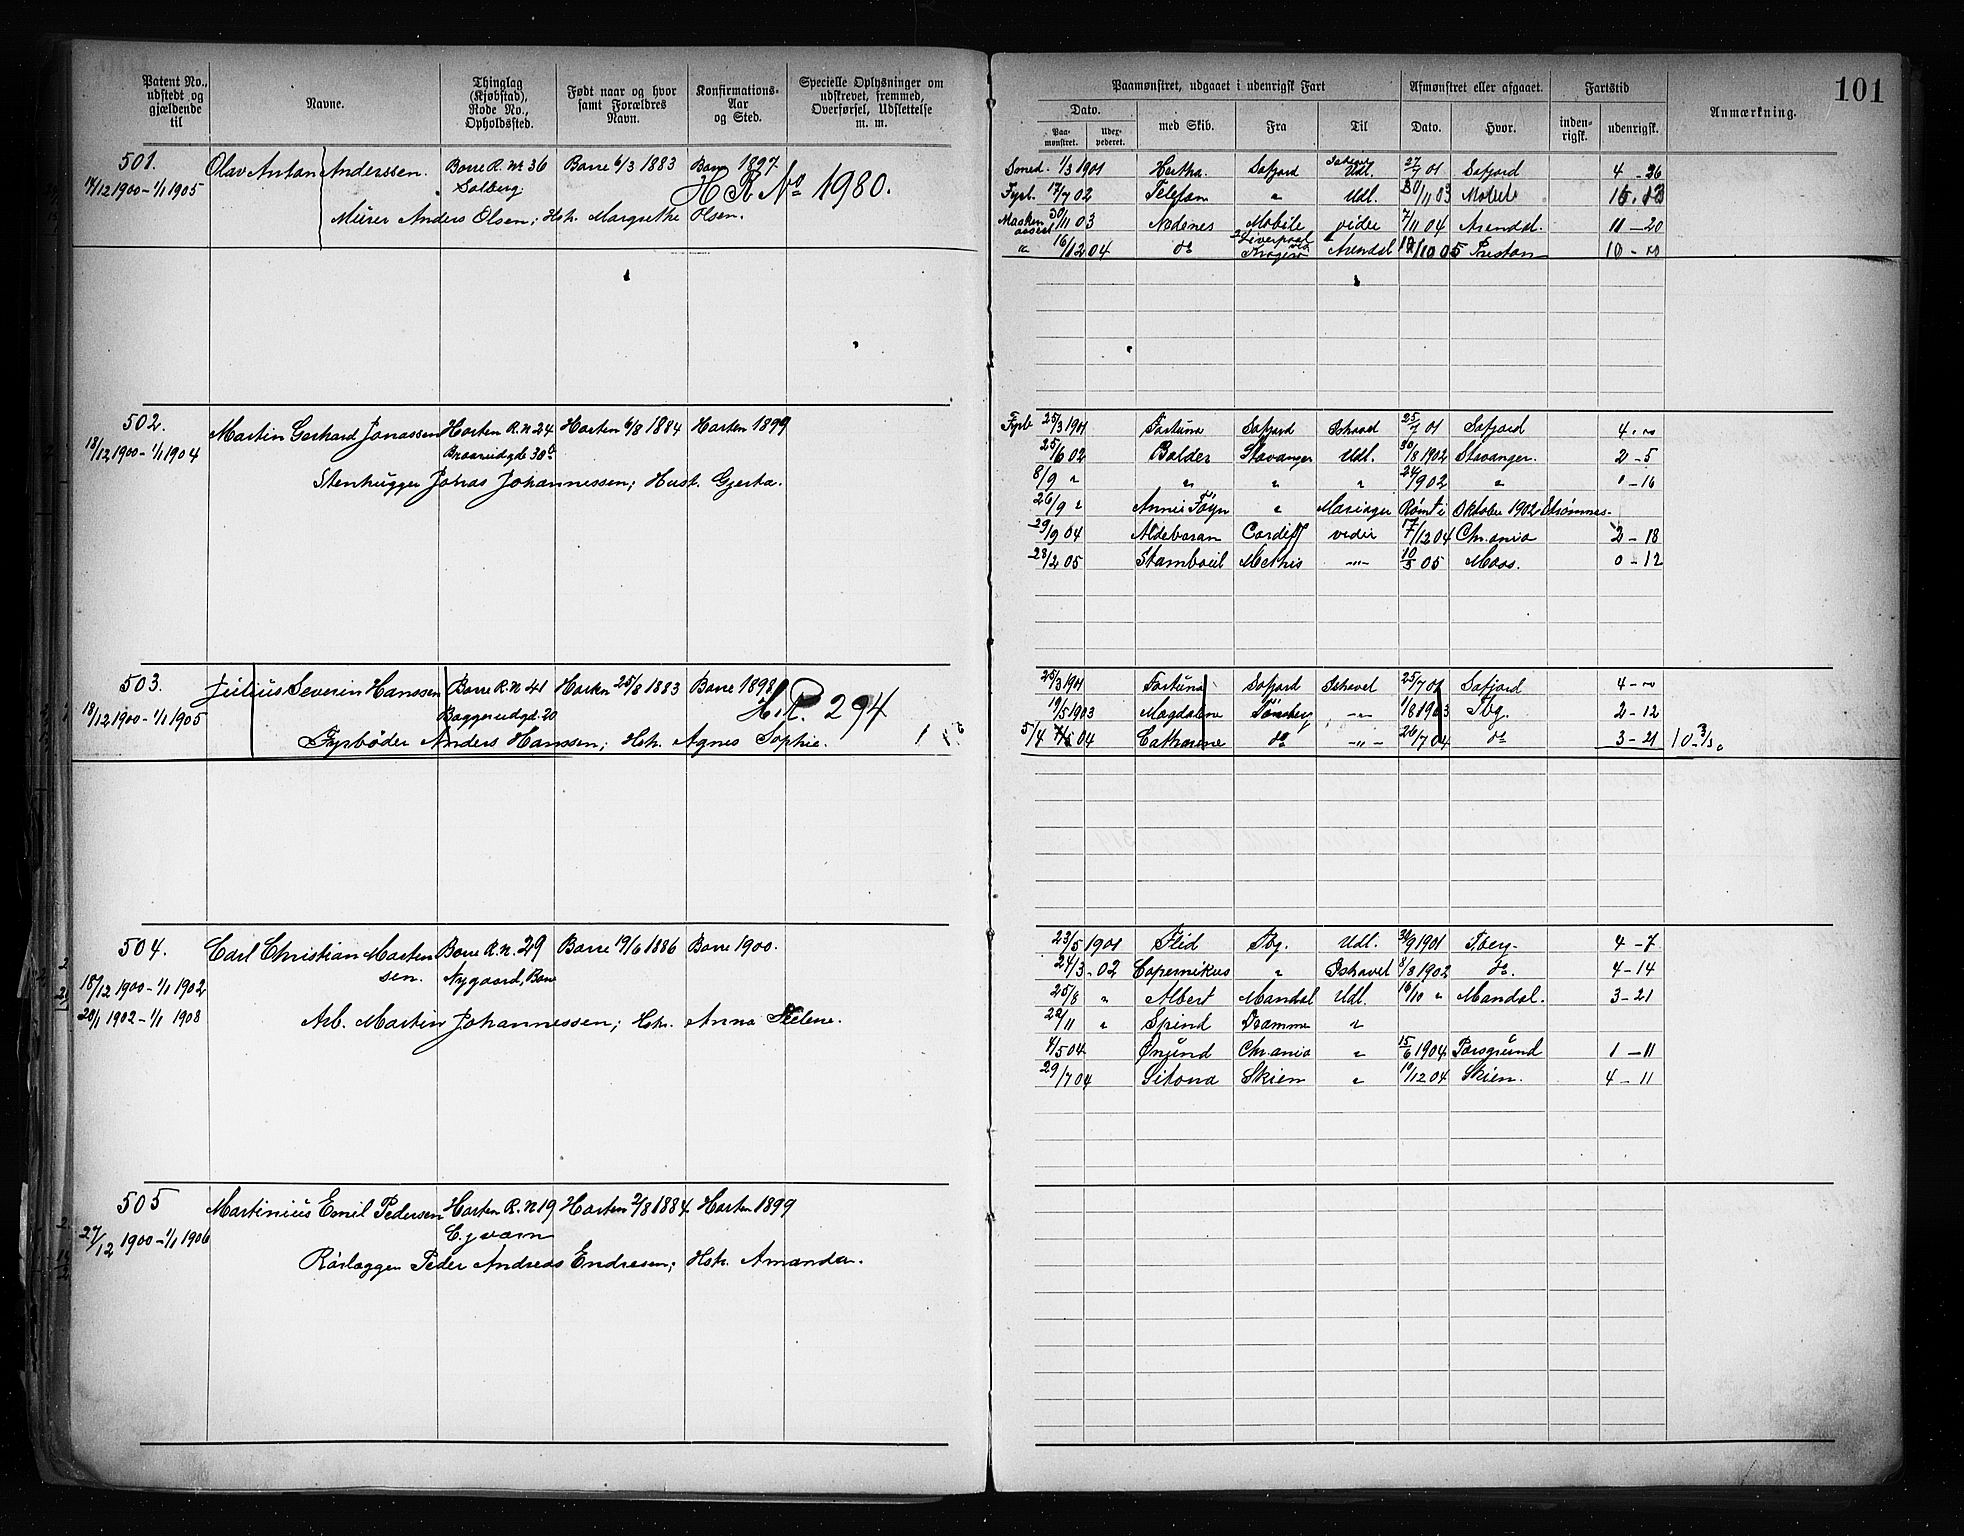 Patent No., udstedt og gjældende til
Navne.
Thinglag (Kjøbstad), Rode No., Opholdssted.
Født naar og hvor samt Forældres Navn.
Konfirmations- Aar og Sted.
Specielle Oplysninger om udskrevet, fremmed, Overførsel, Udslettelse m. m.
501. Olav Anton Anderssen. Borre R. Nr 36 Borre 6/3 1883 Borre 1897
17/12 1900 - 1/1 1905 Solberg H R No 1980.
Murer Anders Olsen; Hst. Margrethe Olsen.
502. Martin Gerhard Jonassen Horten R. N 24 Horten 6/8 1884 Horten 1899
18/12 1900 - 1/1 1904
Stenhugger Jonas Johannessen; Hust. Gjerta.
503. Julius Severin Hanssen Borre R. N 41 Horten 25/8 1883 Borre 1898
18/12 1900 - 1/1 1905 H. R. 294
Fyrbøder Anders Hanssen; Hst. Agnes Sophie.
504. Carl Christian Morten Borre R. N. 29 Borre 19/6 1886 Borre 1900.
sen. Nygaard, Borre
18/12 1900 - 1/1 1902
28/1 1902 - 1/1 1908 Arb. Martin Johannessen; Hst. Anna Helene.
505 Martinius Emil Pedersen Horten R. N 19 Horten 2/8 1884. Horten 1899
27/12 1900 - 1/1 1906
Rørlægger Peder Andreas Endresen; Hst. Amanda.
101
Paamønstret, udgaaet i udenrigsk Fart
Afmønstret eller afgaaet.
Fartstid
Anmærkning.
Dato.
Paa- mønstret. Udex- pederet.
med Skib. Fra Til Dato. Hvor. inden- rigsk. udenrigsk.
1/3 1901 Hertha Søfjord Udl. 27/7 01 Søfjord 4 - 26
Fyrb. 17/7 02 Telefon " Udl. 30/11 03 Mobile
30/11 03 Nedenes Mobile vider 7/11 04 Arendal. 11 - 20
" 16/12 04 do Liverpool Kragerø Arendal Preston
Fyrb 25/3 1901 Fortuna Søfjord Ishavet 25/7 01 Søfjord 4 - "
25/6 02 Balder Stavanger Udl. 30/8 1902 Stavanger. 2 - 5
8/9 " " " " 24/9 02 " 0 - 16
26/9 " Annie Foyn " Mariager Rømt i Oktober 1902 Strømnes.
29/9 04 Aldebaran Cardiff vider 17/12 04 Chr.ania 2 - 18
28/2 05 Stamboul Methis -"- 10/3 05 Moss. 0 - 12
25/3 1901 Fortuna Søfjord Ishavet 25/7 01 Søfjord 4 - "
19/5 1903 Magdalene Tønsberg -"- 1/8 1903 Tbg. 2 - 12
5/4 04 Catharine do -"- 26/7 04 do 3 - 21
23/5 1901 Flid Tbg. Udl. 30/9 1901 Tberg. 4 - 7
24/3 - 02 Copernikus " Ishavet 8/8 1902 do. 4 - 14
25/8 " Albert Mandal Udl. 16/10 " Mandal. 3 - 21
22/11 " Spind Dramme "
4/5 04 Ønund Chr.ania " 15/6 1904 Porsgrund 1 - 11
29/7 04 Sitona Skien " 10/12 04 Skien. 4 - 11